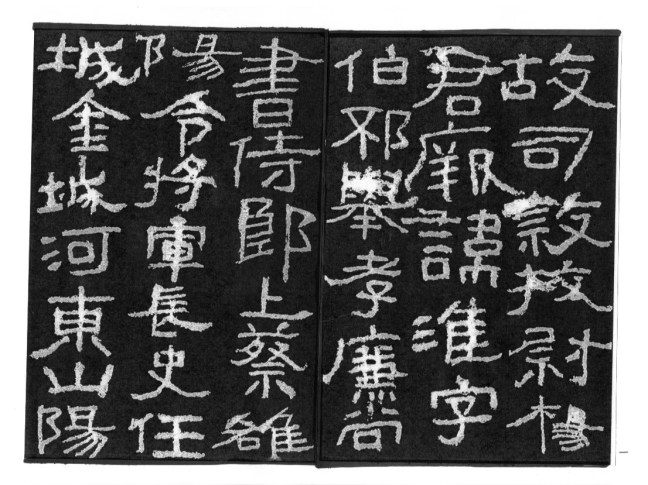 故司隸校尉楊
君厥諱淮字
伯邳舉孝廉尚
書侍郎上蔡雒
陽令將軍長史任
城金城河東山陽